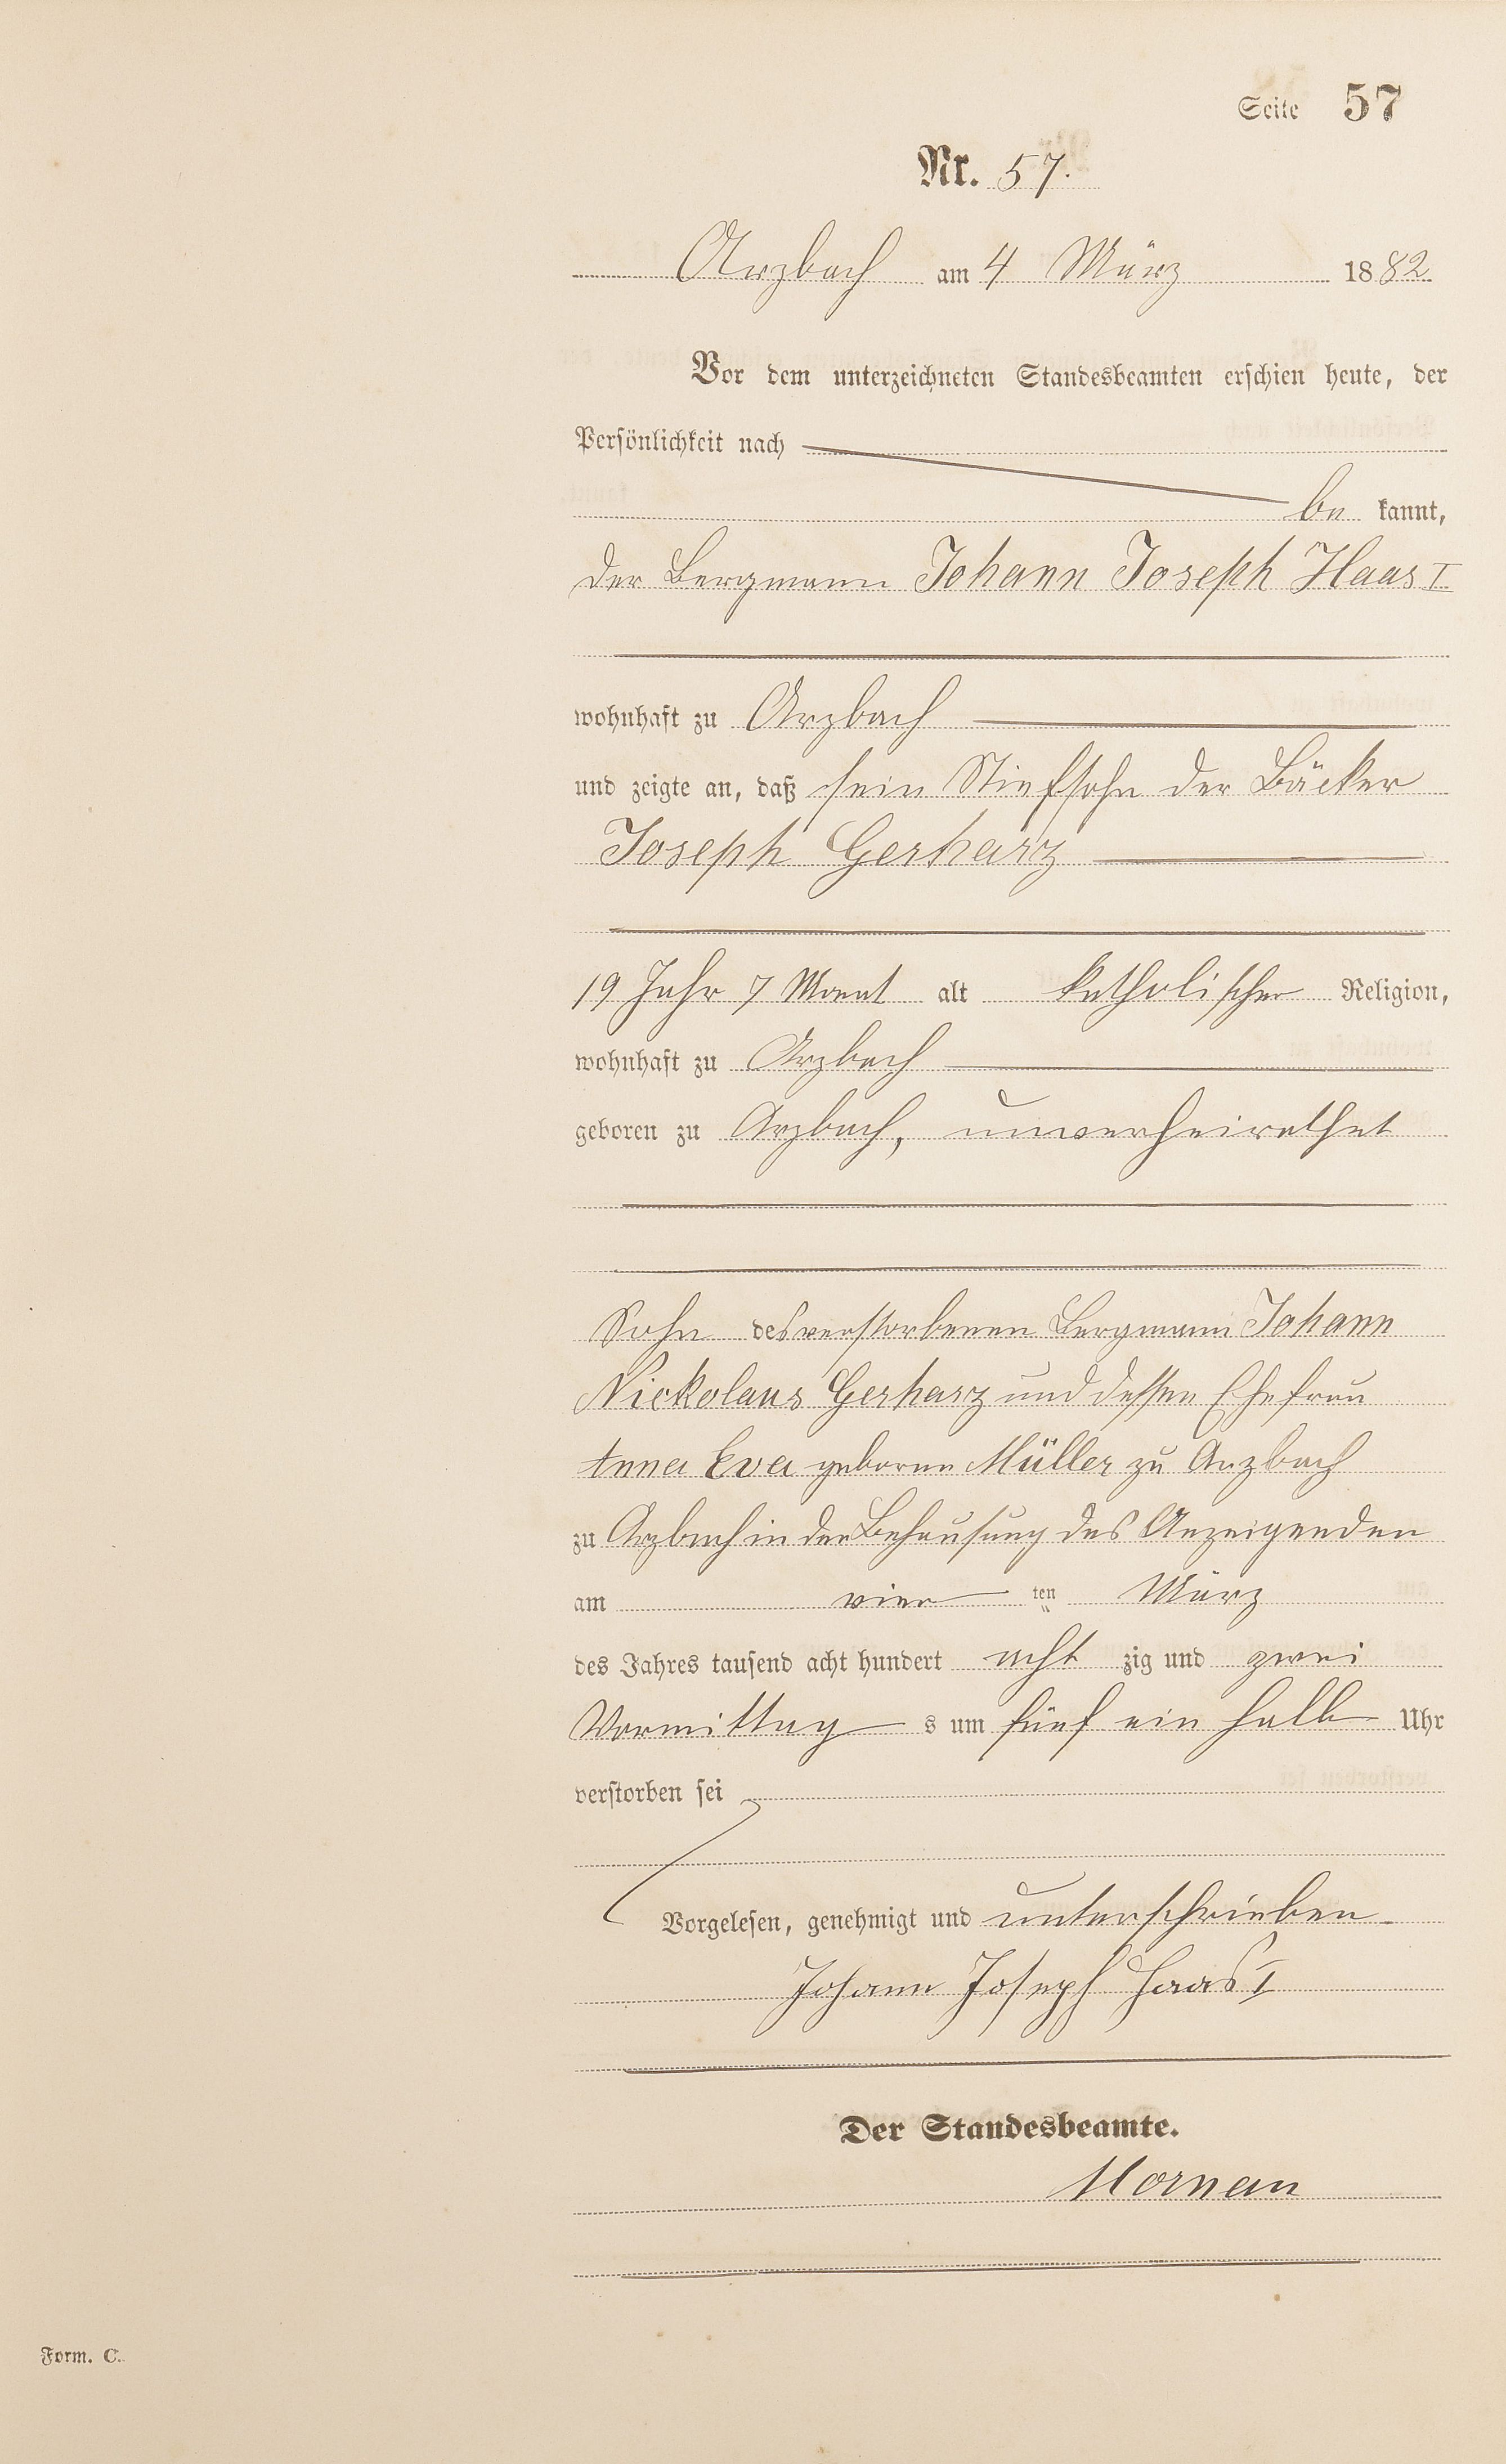 Seite 57
Nr. 57.
Arzbach am 4 März 1882
Vor dem unterzeichneten Standesbeamten erschien heute, der
Persönlichkeit nach
be kannt,
der Bergmann Johann Joseph Haas I
wohnhaft zu Arzbach
und zeigte an, daß sein Stiefsohn der Bäcker
Joseph Gerharz
19 Jahr 7 Monat alt katholischer Religion,
wohnhaft zu Arzbach
geboren zu Arzbach, unverheirathet
Sohn des verstorbenen Bergmann Johann
Nickolaus Gerharz und dessen Ehefrau
Anna Eva geborne Müller zu Arzbach
zu Arzbach in der Behausung des Anzeigenden
am vier ten März
des Jahres tausend acht hundert acht zig und zwei
Vormittag s um fünf ein halb Uhr
verstorben sei
Vorgelesen, genehmigt und unterschrieben
Johann Joseph Haas I
Der Standesbeamte.
Form. C.